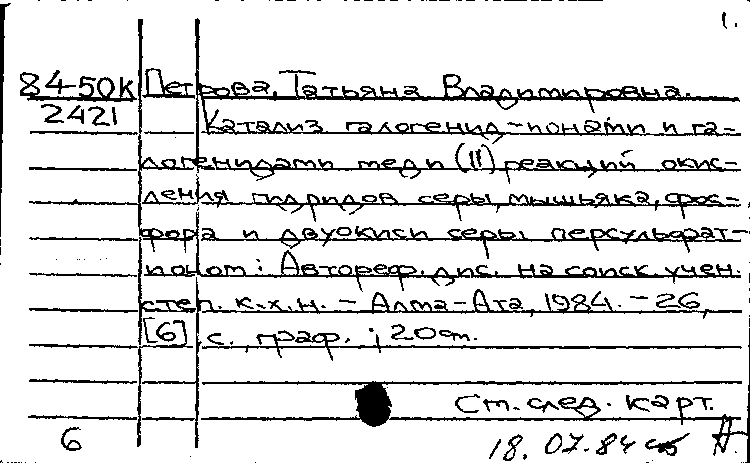 1.
84-50К Петрова, Татьяна Владимировна.
2421 Катализ галогенид-ионами и га=
логенидами меди (II) реакций окис-
ления гидридов серы, мышьяка, фос=
фора и двуокиси серы персульфат-
ионом: Автореф. дис. на соиск. учен.
степ. к.х.н. - Алма-Ата, 1984. - 26,
[6] с., граф. ; 20 см.
См. след. карт.
6 18.07.84